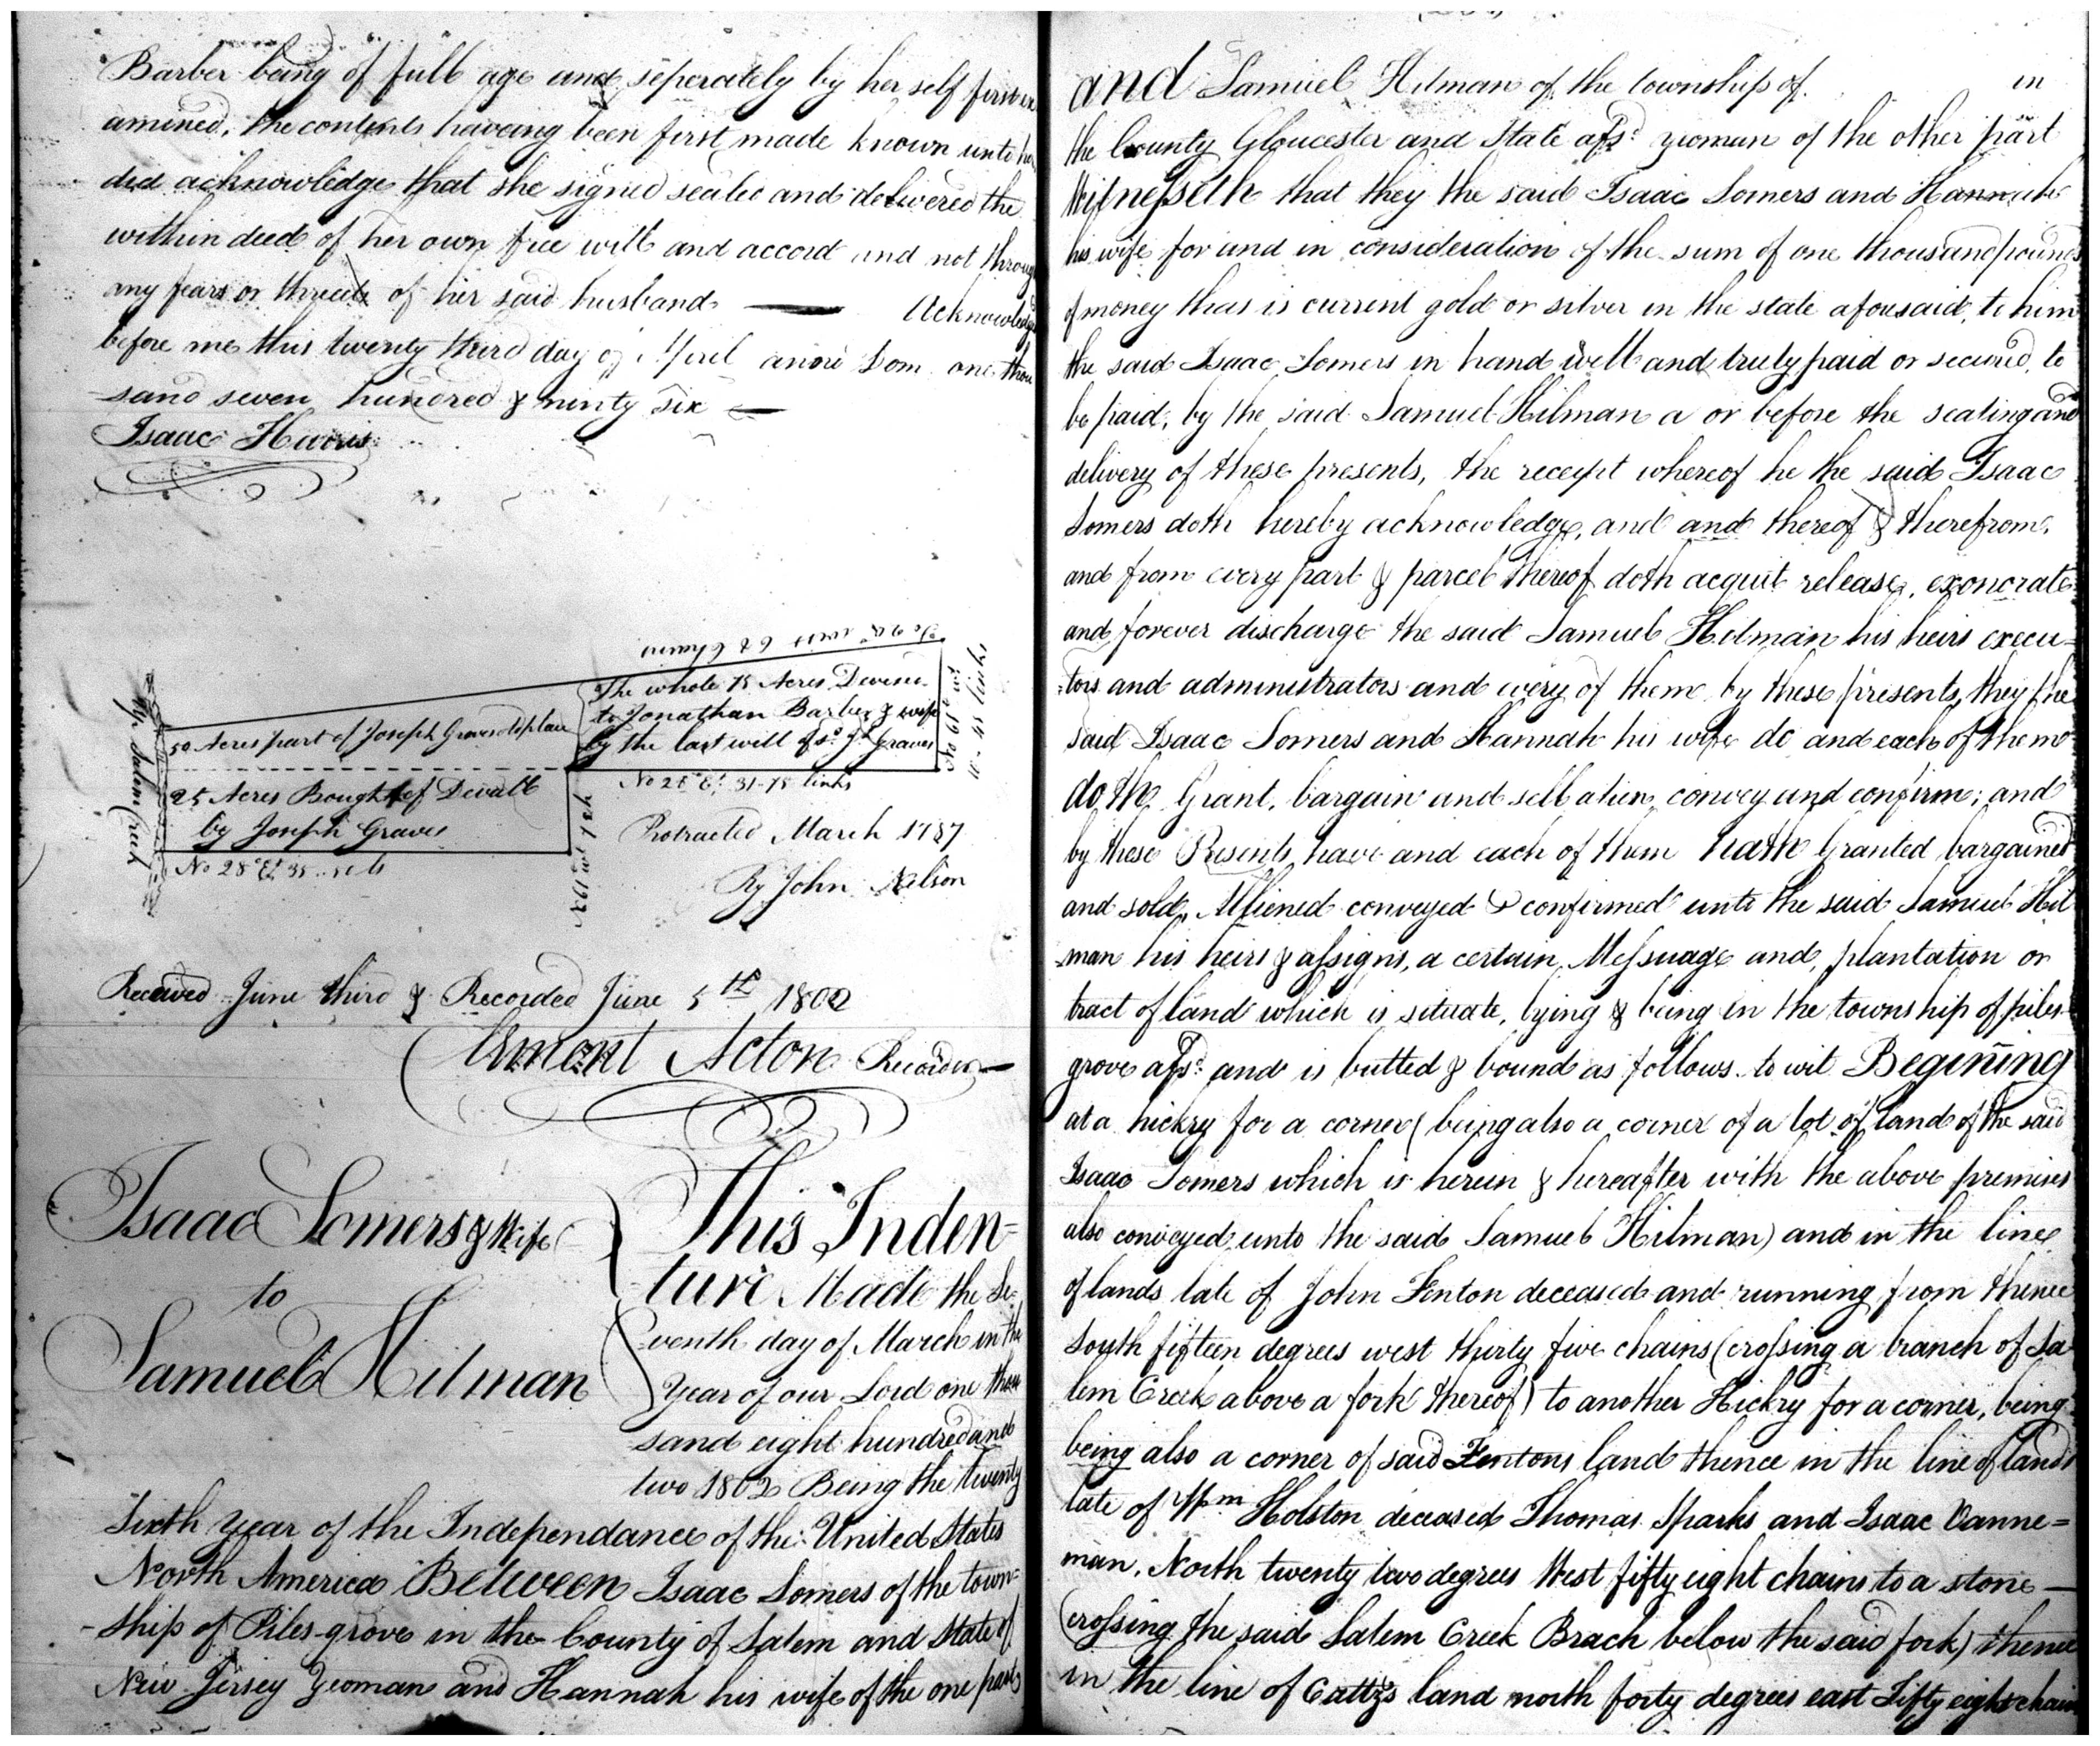 Barber being of full age and seperately by her self first ex
amined, the contents haveing been first made known unto her
did acknowledge that she signed sealed and delivered the
within deed of her own free will and accord and not through
any fears or threats of her said husband — Acknowledged
before me this twenty third day of April anno Dom one thou
sand seven hundred & ninty six —
Isaac Harris
62 Chains
The whole 75 Acres Devised
to Jonathan Barber & wife
by the last will of sd. Js. Graves
50 Acres part of Joseph Graves's place
25 Acres Bought of Devall
by Joseph Graves
No 28 Et. 31-75 links
No 28 Et. 35
Salem Creek
links
Protracted March 1787
By John Nelson
Received June third & Recorded June 5th 1802
Clement Acton Recorder —
Isaac Somers & Wife
to
Samuel Hilman
This Inden=
ture Made the Se
venth day of March in the
Year of our Lord one thou
sand eight hundred and
two 1802 Being the twenty
Sixth Year of the Independance of the United States
North America Between Isaac Somers of the town=
ship of Piles-grove in the County of Salem and State of
New Jersey Yeoman and Hannah his wife of the one part
and Samuel Hilman of the township of in
the County Gloucester and State afsd. yeoman of the other part
Witnesseth that they the said Isaac Somers and Hannah
his wife for and in consideration of the sum of one thousand pounds
of money thas is current gold or silver in the state aforesaid, to him
the said Isaac Somers in hand well and truly paid or secured, to
be paid, by the said Samuel Hilman a or before the sealing and
delivery of these presents, the receipt whereof he the said Isaac
Somers doth hereby acknowledge, and and thereof & therefrom,
and from every part & parcel thereof doth acquit release, exonorate
and forever discharge the said Samuel Hilman his heirs execu=
=tors and administrators and every of them by these presents, they the
said Isaac Somers and Hannah his wife do and each of them
doth Grant, bargain and sell alien, convey and confirm; and
by these Presents have and each of them hath Granted bargained
and sold, Alliened conveyed & confirmed unto the said Samuel Hil
-man his heirs & assigns, a certain Messuage and, plantation or
tract of land which is situate, lying & being in the township of piles-
grove afsd. and is butted & bound as follows. to wit Begining
at a hickry for a corner (being also a corner of a lot of land of the said
Isaac Somers which is herein & hereafter with the above premises
also conveyed unto the said Samuel Hilman) and in the line
of lands late of John Fenton deceased and running from thence
South fifteen degrees west thirty five chains (crossing a branch of Sa
lem Creek above a fork thereof) to another Hickry for a corner, being
being also a corner of said Fentons land thence in the line of lands
late of Wm Holston deceased Thomas Sparks and Isaac Vanne=
man, North twenty two degrees West fifty eight chains to a stone —
(crossing the said Salem Creek Brach below the said fork) thence
in the line of Cattzs land north forty degrees east Fifty eight chains